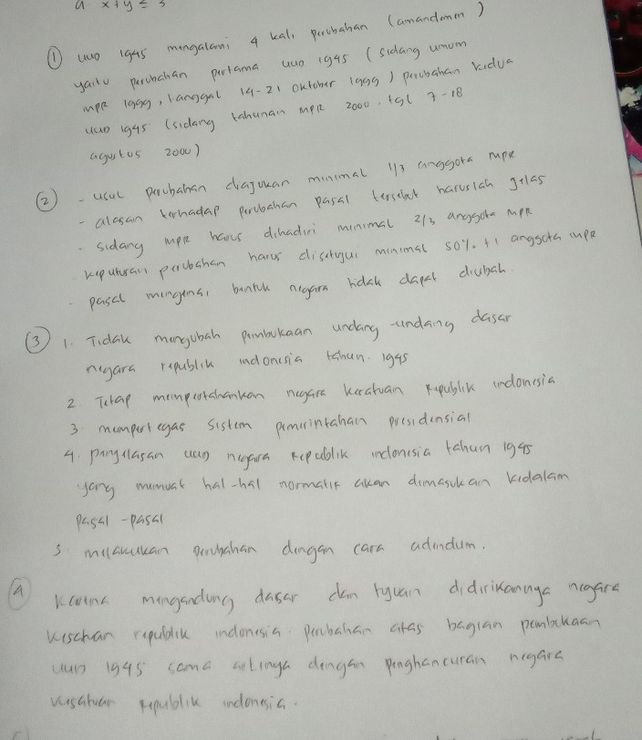 x + y ≤ 3
① UUD 1945 mengalami 4 kali perubahan (amandemen)
yaitu perubahan pertama UUD 1945 (sidang umum
MPR 1999, tanggal 14-21 oktober 1999) perubahan kedua
UUD 1945 (sidang tahunan MPR 2000. tgl 7-18
agustus 2000)
② - usul perubahan diajukan minimal 1/3 anggota MPR
- alasan terhadap perubahan pasal tersebut haruslah jelas
- sidang MPR harus dihadiri minimal 2/3 anggota MPR
keputusan perubahan harus disetujui minimal 50% +1 anggota MPR
- pasal mengenai bentuk negara tidak dapat diubah.
③ 1. Tidak mengubah pembukaan undang-undang dasar
negara republik indonesia tahun. 1945
2. Tetap mempertahankan negara kesatuan republik indonesia
3. mempertegas sistem pemerintahan presidensial
4. penjelasan UUD negara Republik indonesia tahun 1945
yang memuat hal-hal normatif akan dimasukan kedalam
pasal-pasal
5. melakukan perubahan dengan cara adendum.
④ Karena mengandung dasar dan tujuan didirikannya negara
kesatuan republik indonesia. perubahan atas bagian pembukaan
UUD 1945 sama artinya dengan penghancuran negara
kesatuan republik indonesia.